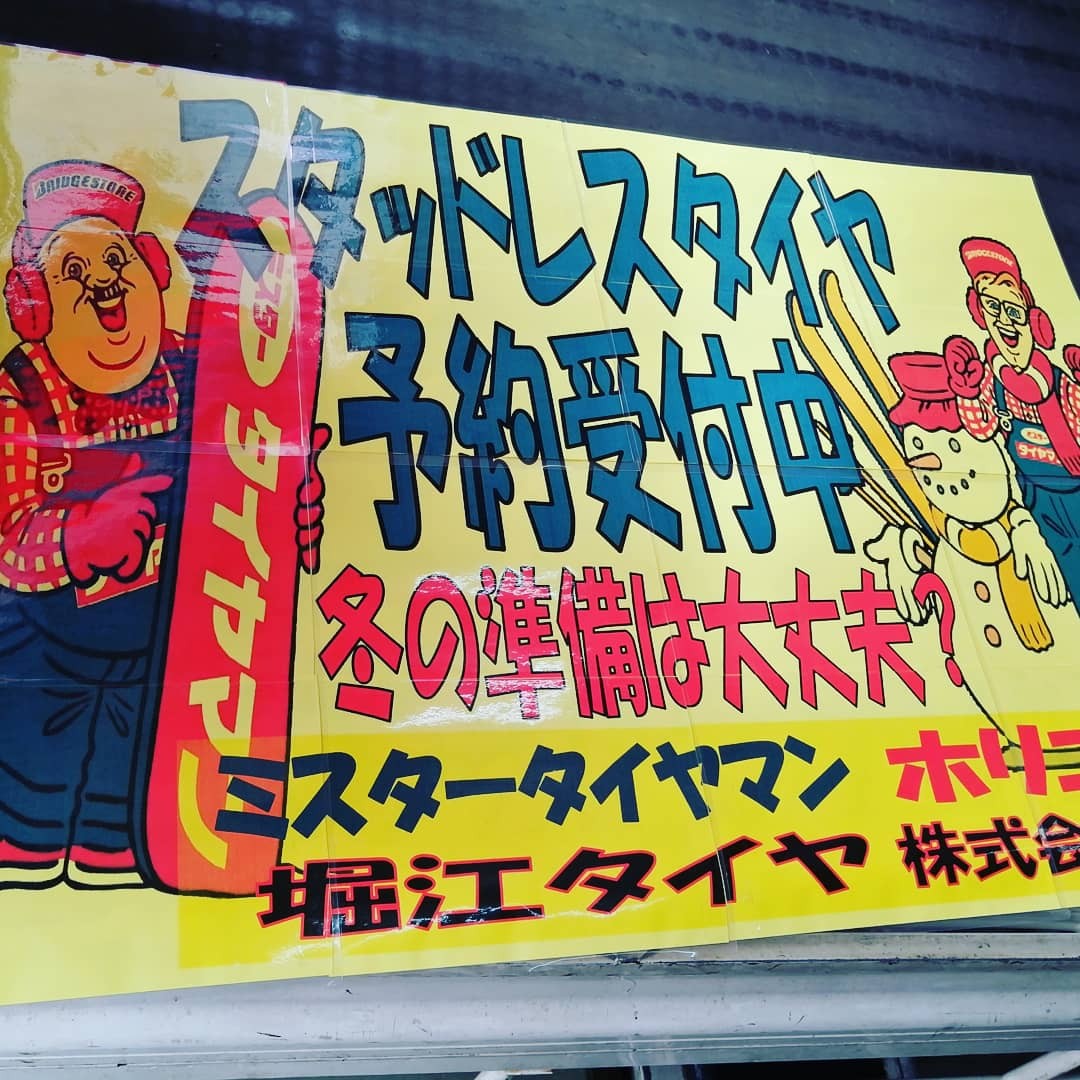 スタッドレスタイヤ
予約受付中
冬の準備は大丈夫?
ミスタータイヤマン ホリ
堀江タイヤ 株式会
BRIDGESTONE
スター タイヤマン
BRIDGESTONE
ミスター
タイヤマン